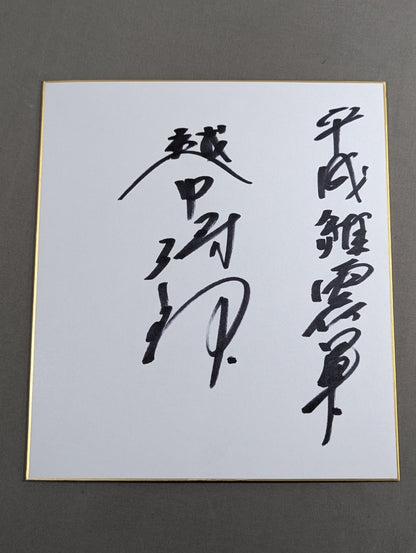 平成維震軍
越中詩郎